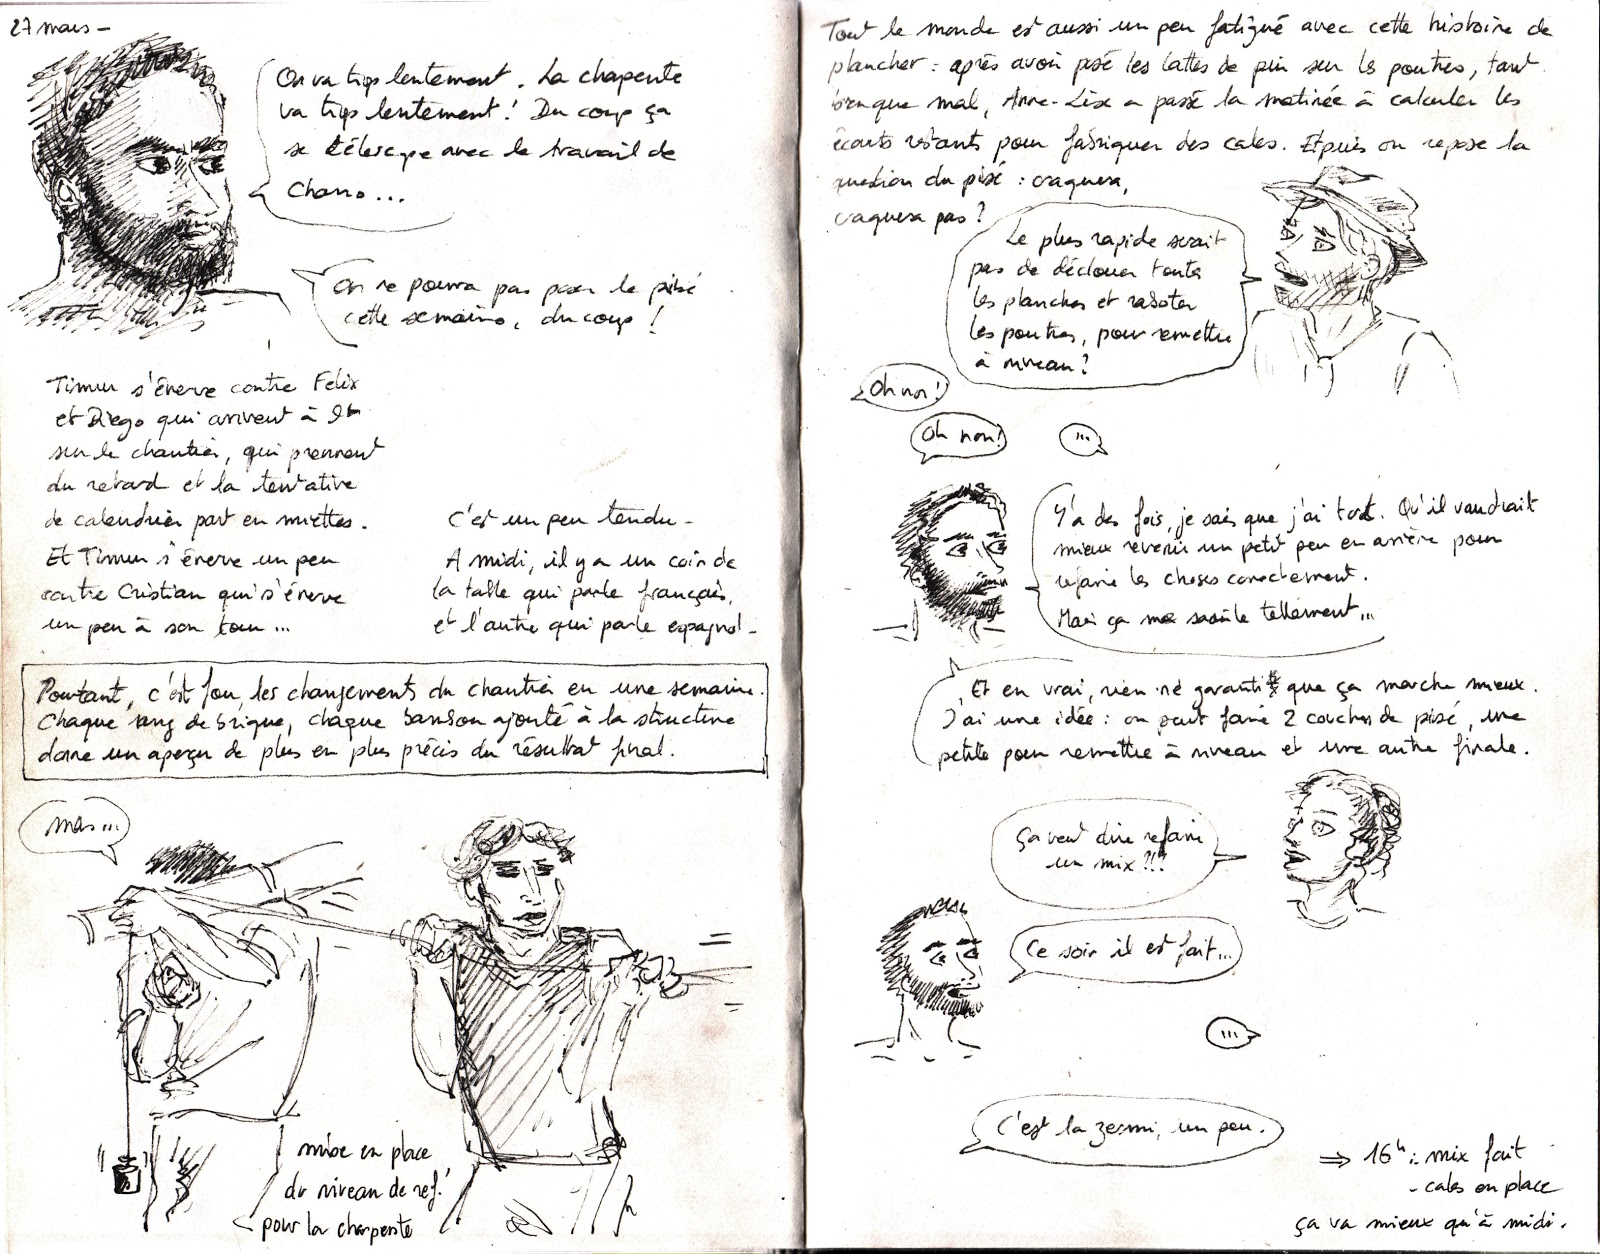 27 mars –
On va trop lentement. La charpente
va trop lentement ! Du coup ça
se télescope avec le travail de
Charo...
On ne pourra pas poser le pisé
cette semaine, du coup !
Timur s'énerve contre Felix
et Diego qui arrivent à 9h
sur le chantier, qui prennent
du retard et la tentative
de calendrier part en miettes.
Et Timur s'énerve un peu
contre Cristian qui s'énerve
un peu à son tour...
C'est un peu tendu –
A midi, il y a un coin de
la table qui parle français,
et l'autre qui parle espagnol –
Pourtant, c'est fou, les changements du chantier en une semaine.
Chaque rang de brique, chaque bambou ajouté à la structure
donne un aperçu de plus en plus précis du résultat final.
mais...
mise en place
du niveau de réf.
pour la charpente
Tout le monde est aussi un peu fatigué avec cette histoire de
plancher : après avoir posé les lattes de pin sur les poutres, tant
bien que mal, Anne-Lise a passé la matinée à calculer les
écarts restants pour fabriquer des cales. Et puis on repose la
question du pisé : craquera,
craquera pas ?
Le plus rapide serait
pas de déclouer toutes
les planches et raboter
les poutres, pour remettre
à niveau ?
Oh non !
Oh non !
...
Y'a des fois, je sais que j'ai tort. Qu'il vaudrait
mieux revenir un petit peu en arrière pour
refaire les choses correctement.
Mais ça me saoule tellement...
Et en vrai, rien ne garantit que ça marche mieux.
J'ai une idée : on peut faire 2 couches de pisé, une
petite pour remettre à niveau et une autre finale.
Ça veut dire refaire
un mix ?!?
Ce soir il est fait...
...
C'est la zermi, un peu.
⇒ 16h : mix fait
- cales en place
ça va mieux qu'à midi.